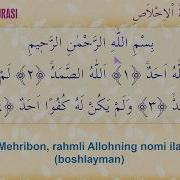 RASI ةُ الْإِخْلَاصِ
بِسْمِ اللَّهِ الرَّحْمَٰنِ الرَّحِيمِ
اللَّهُ أَحَدٌ ﴿١﴾ اللَّهُ الصَّمَدُ ﴿٢﴾ لَمْ
﴿٣﴾ وَلَمْ يَكُنْ لَهُ كُفُوًا أَحَدٌ
Mehribon, rahmli Allohning nomi ila
(boshlayman)